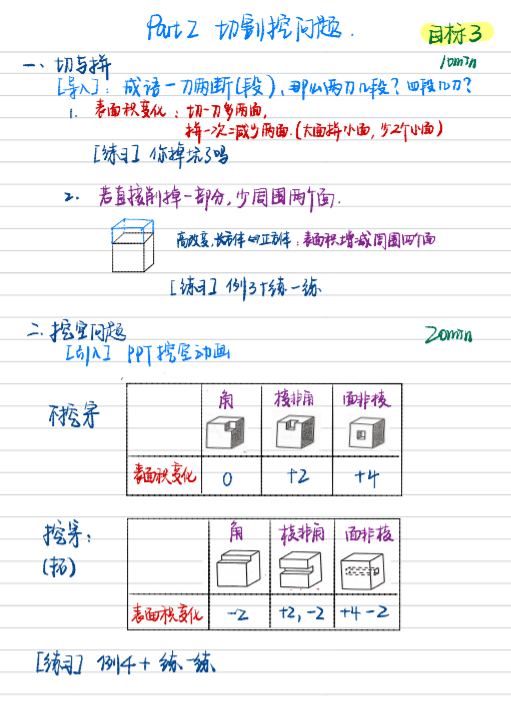 Part 2 切割挖问题.
目标3
10min
一、切与拼
[导入]: 成语一刀两断(段), 那么两刀几段? 四段几刀?
1. 表面积变化: 切一刀多两面,
拼一次=减少两面.(大面拼小面, 少2个小面)
[练习] 你掉坑了吗
2. 若直接削掉一部分, 少周围四个面.
高改变, 长方体⇔正方体: 表面积增减周围四个面
[练习] 例3+练一练
二. 挖空问题 20min
[引入] PPT挖空动画
不挖穿
角 棱非角 面非棱
表面积变化 0 +2 +4
挖穿:
(拓)
角 棱非角 面非棱
表面积变化 -2 +2, -2 +4-2
[练习] 例4+练一练